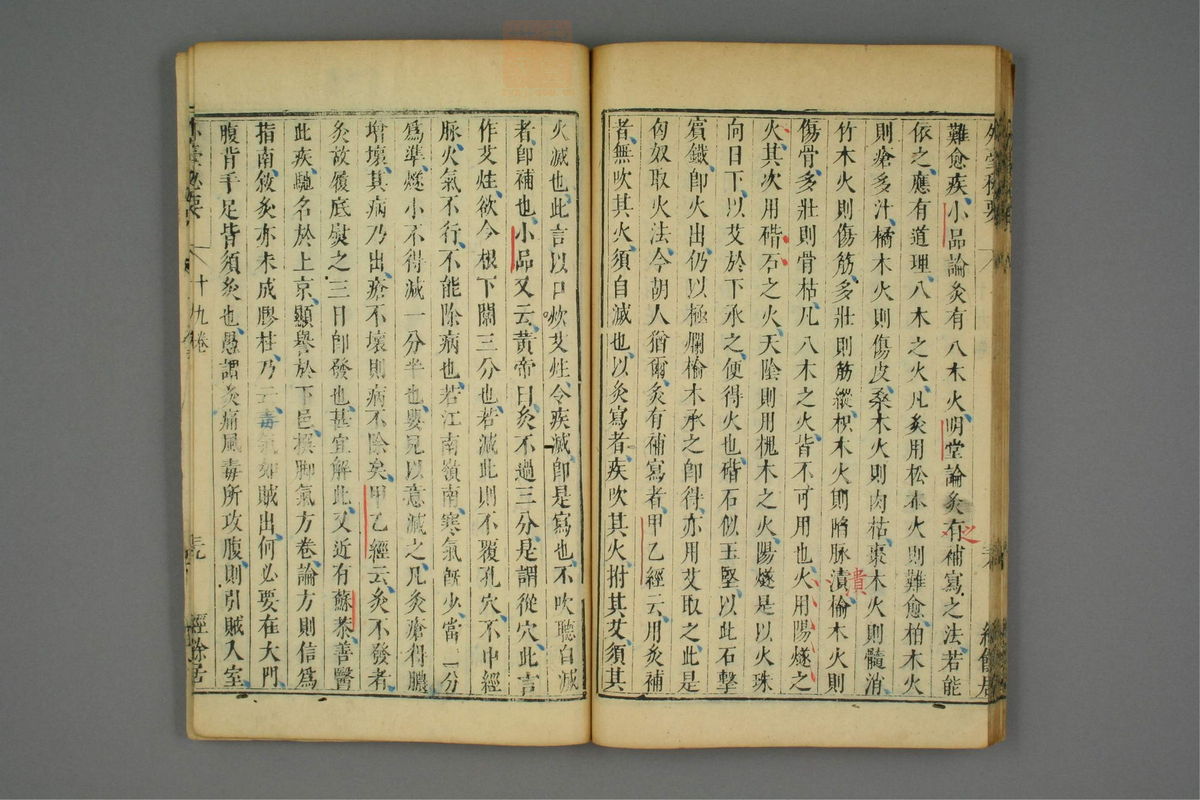 難愈疾小品論灸有八木火明堂論灸有補寫之法若能
之
依之應有道理八木之火凡灸用松木火則難愈柏木火
則瘡多汁橘木火則傷皮桑木火則肉枯棗木火則髓消
竹木火則傷筋多壯則筋縱枳木火則陷脉漬榆木火則
潰
傷骨多壯則骨枯凡八木之火皆不可用也火用陽燧之
火其次用䃈石之火天陰則用槐木之火陽燧是以火珠
向日下以艾於下承之便得火也䃈石似玉堅以此石擊
賓鐵即火出仍以極爛榆木承之即得亦用艾取之此是
匈奴取火法今胡人猶爾灸有補寫者甲乙經云用灸補
者無吹其火須自滅也以灸寫者疾吹其火拊其艾須其
火滅也此言以口炊艾炷令疾滅即是寫也不吹聽自滅
者即補也小品又云黃帝曰灸不過三分是謂從穴此言
作艾炷欲令根下闊三分也若減此則不覆孔穴不中經
脉火氣不行不能除病也若江南嶺南寒氣旣少當二分
爲準燧小不得減一分半也要見以意減之凡灸瘡得膿
增壞其病乃出瘡不壞則病不除矣甲乙經云灸不發者
灸故履底熨之三日即發也甚宜解此又近有蘇恭善醫
此疾馳名於上京顯譽於下邑撰脚氣方卷論方則信爲
指南敘灸亦未成膠柱乃云毒氣如賊出何必要在大門
腹背手足皆須灸也愚謂灸痛風毒所攻腹則引賊入室
十九卷
經餘居